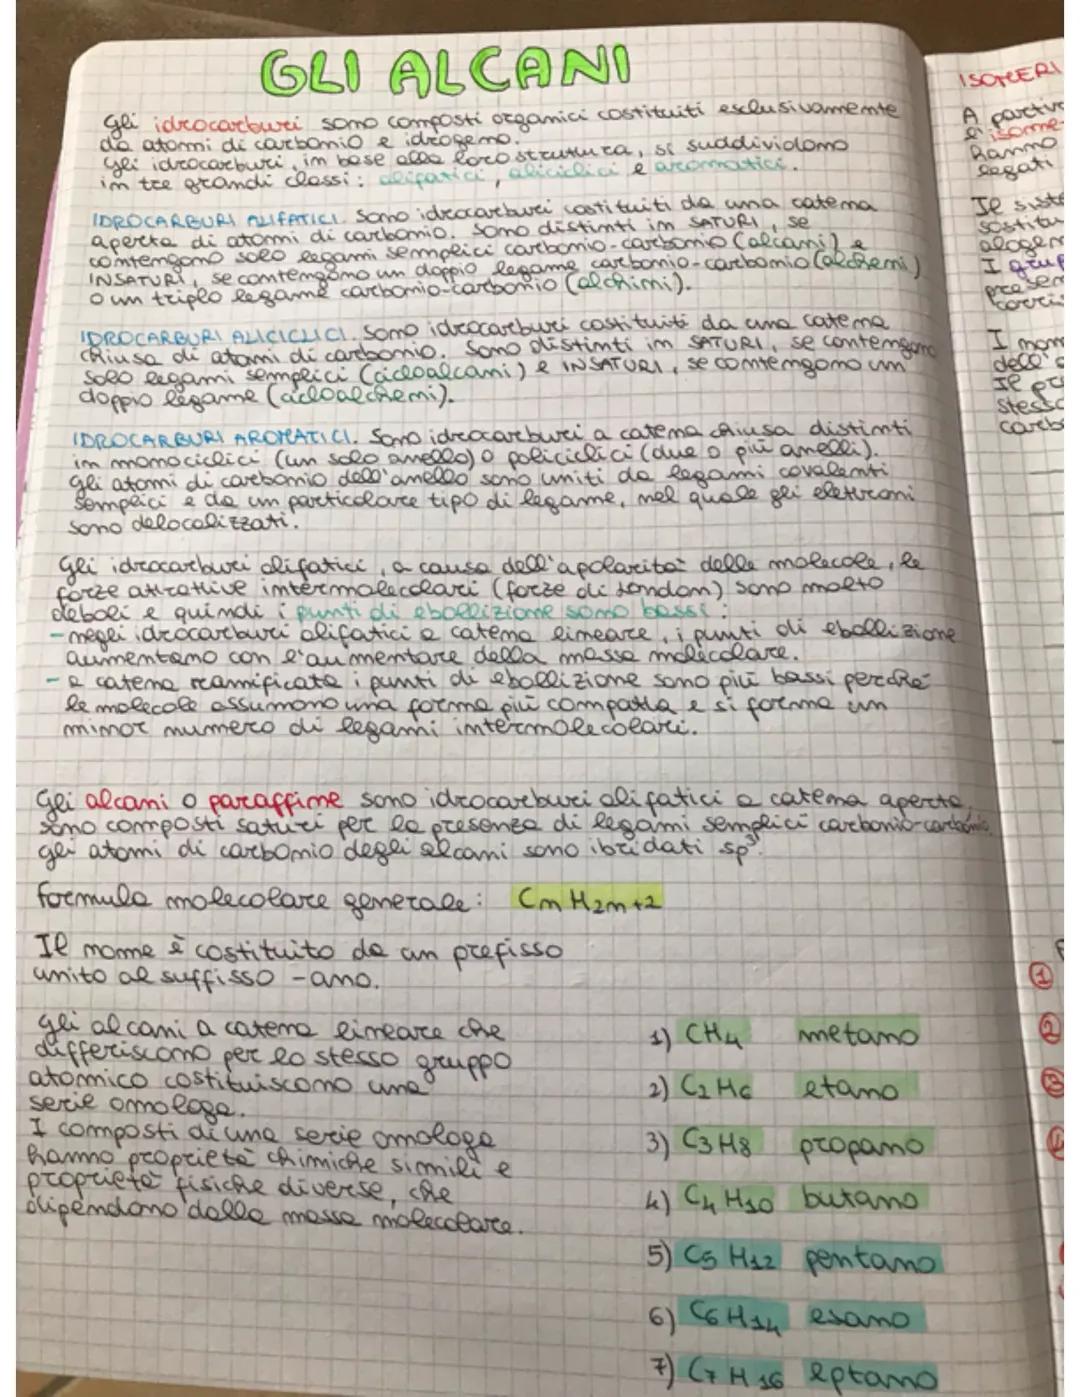 GLI ALCANI
Gli idrocarburi sono composti organici costituiti esclusivamente
da atomi di carbonio e idrogeno.
Gli idrocarburi, in base alla loro struttura, si suddividono
in tre grandi classi: alifatici, aliciclici e aromatici.
IDROCARBURI ALIFATICI. Sono idrocarburi costituiti da una catena
aperta di atomi di carbonio. Sono distinti in SATURI, se
contengono solo legami semplici carbonio-carbonio (alcani) e
INSATURI, se contengono un doppio legame carbonio-carbonio (alcheni)
o un triplo legame carbonio-carbonio (alchini).
IDROCARBURI ALICICLICI. Sono idrocarburi costituiti da una catena
chiusa di atomi di carbonio. Sono distinti in SATURI, se contengono
solo legami semplici (cicloalcani) e INSATURI, se contengono un
doppio legame (cicloalcheni).
IDROCARBURI AROMATICI. Sono idrocarburi a catena chiusa distinti
in monociclici (un solo anello) o policiclici (due o più anelli).
Gli atomi di carbonio dell'anello sono uniti da legami covalenti
semplici e da un particolare tipo di legame, nel quale gli elettroni
sono delocalizzati.
Gli idrocarburi alifatici, a causa dell'apolarità delle molecole, le
forze attrattive intermolecolari (forze di London) sono molto
deboli e quindi i punti di ebollizione sono bassi:
- negli idrocarburi alifatici a catena lineare, i punti di ebollizione
aumentano con l'aumentare della massa molecolare.
- a catena ramificata i punti di ebollizione sono più bassi perché
le molecole assumono una forma più compatta e si forma un
minor numero di legami intermolecolari.
Gli alcani o paraffine sono idrocarburi alifatici a catena aperta,
sono composti saturi per la presenza di legami semplici carbonio-carbonio,
gli atomi di carbonio degli alcani sono ibridati sp³.
formula molecolare generale: CnH2n+2
Il nome è costituito da un prefisso
unito al suffisso -ano.
Gli alcani a catena lineare che
differiscono per lo stesso gruppo
atomico costituiscono una
serie omologa.
I composti di una serie omologa
hanno proprietà chimiche simili e
proprietà fisiche diverse, che
dipendono dalla massa molecolare.
1) CH4 metano
2) C2H6 etano
3) C3H8 propano
4) C4H10 butano
5) C5H12 pentano
6) C6H14 esano
7) C7H16 eptano
ISOMERI
A
hanno
legati
Il
I
I
dell'
Il
1
2
3